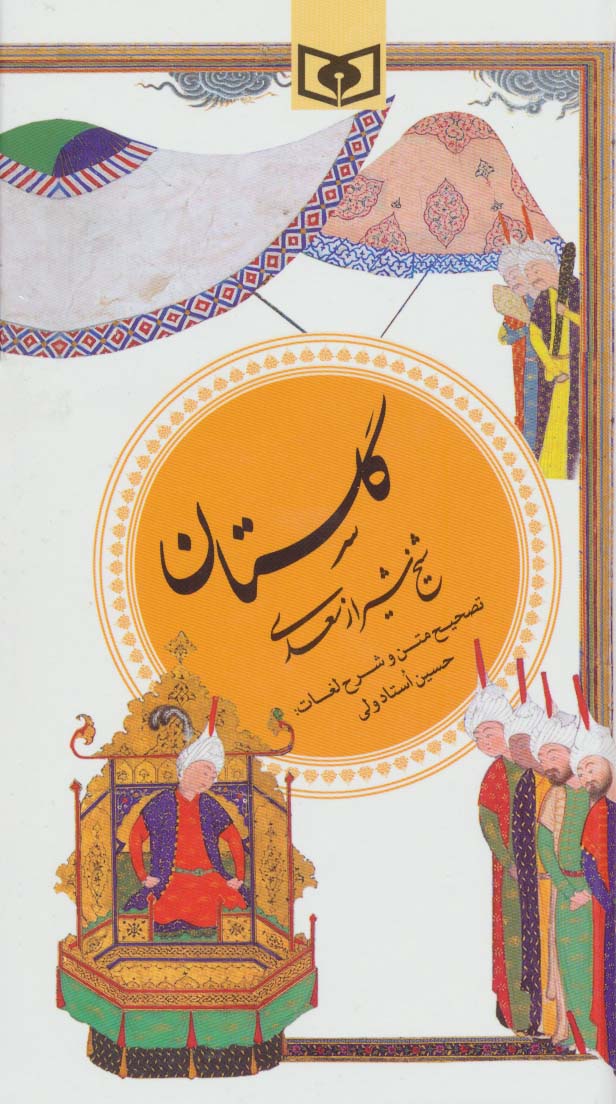 گلستان
شیخ شیراز سعدی
تصحیح متن و شرح لغات:
حسین اُستادولی